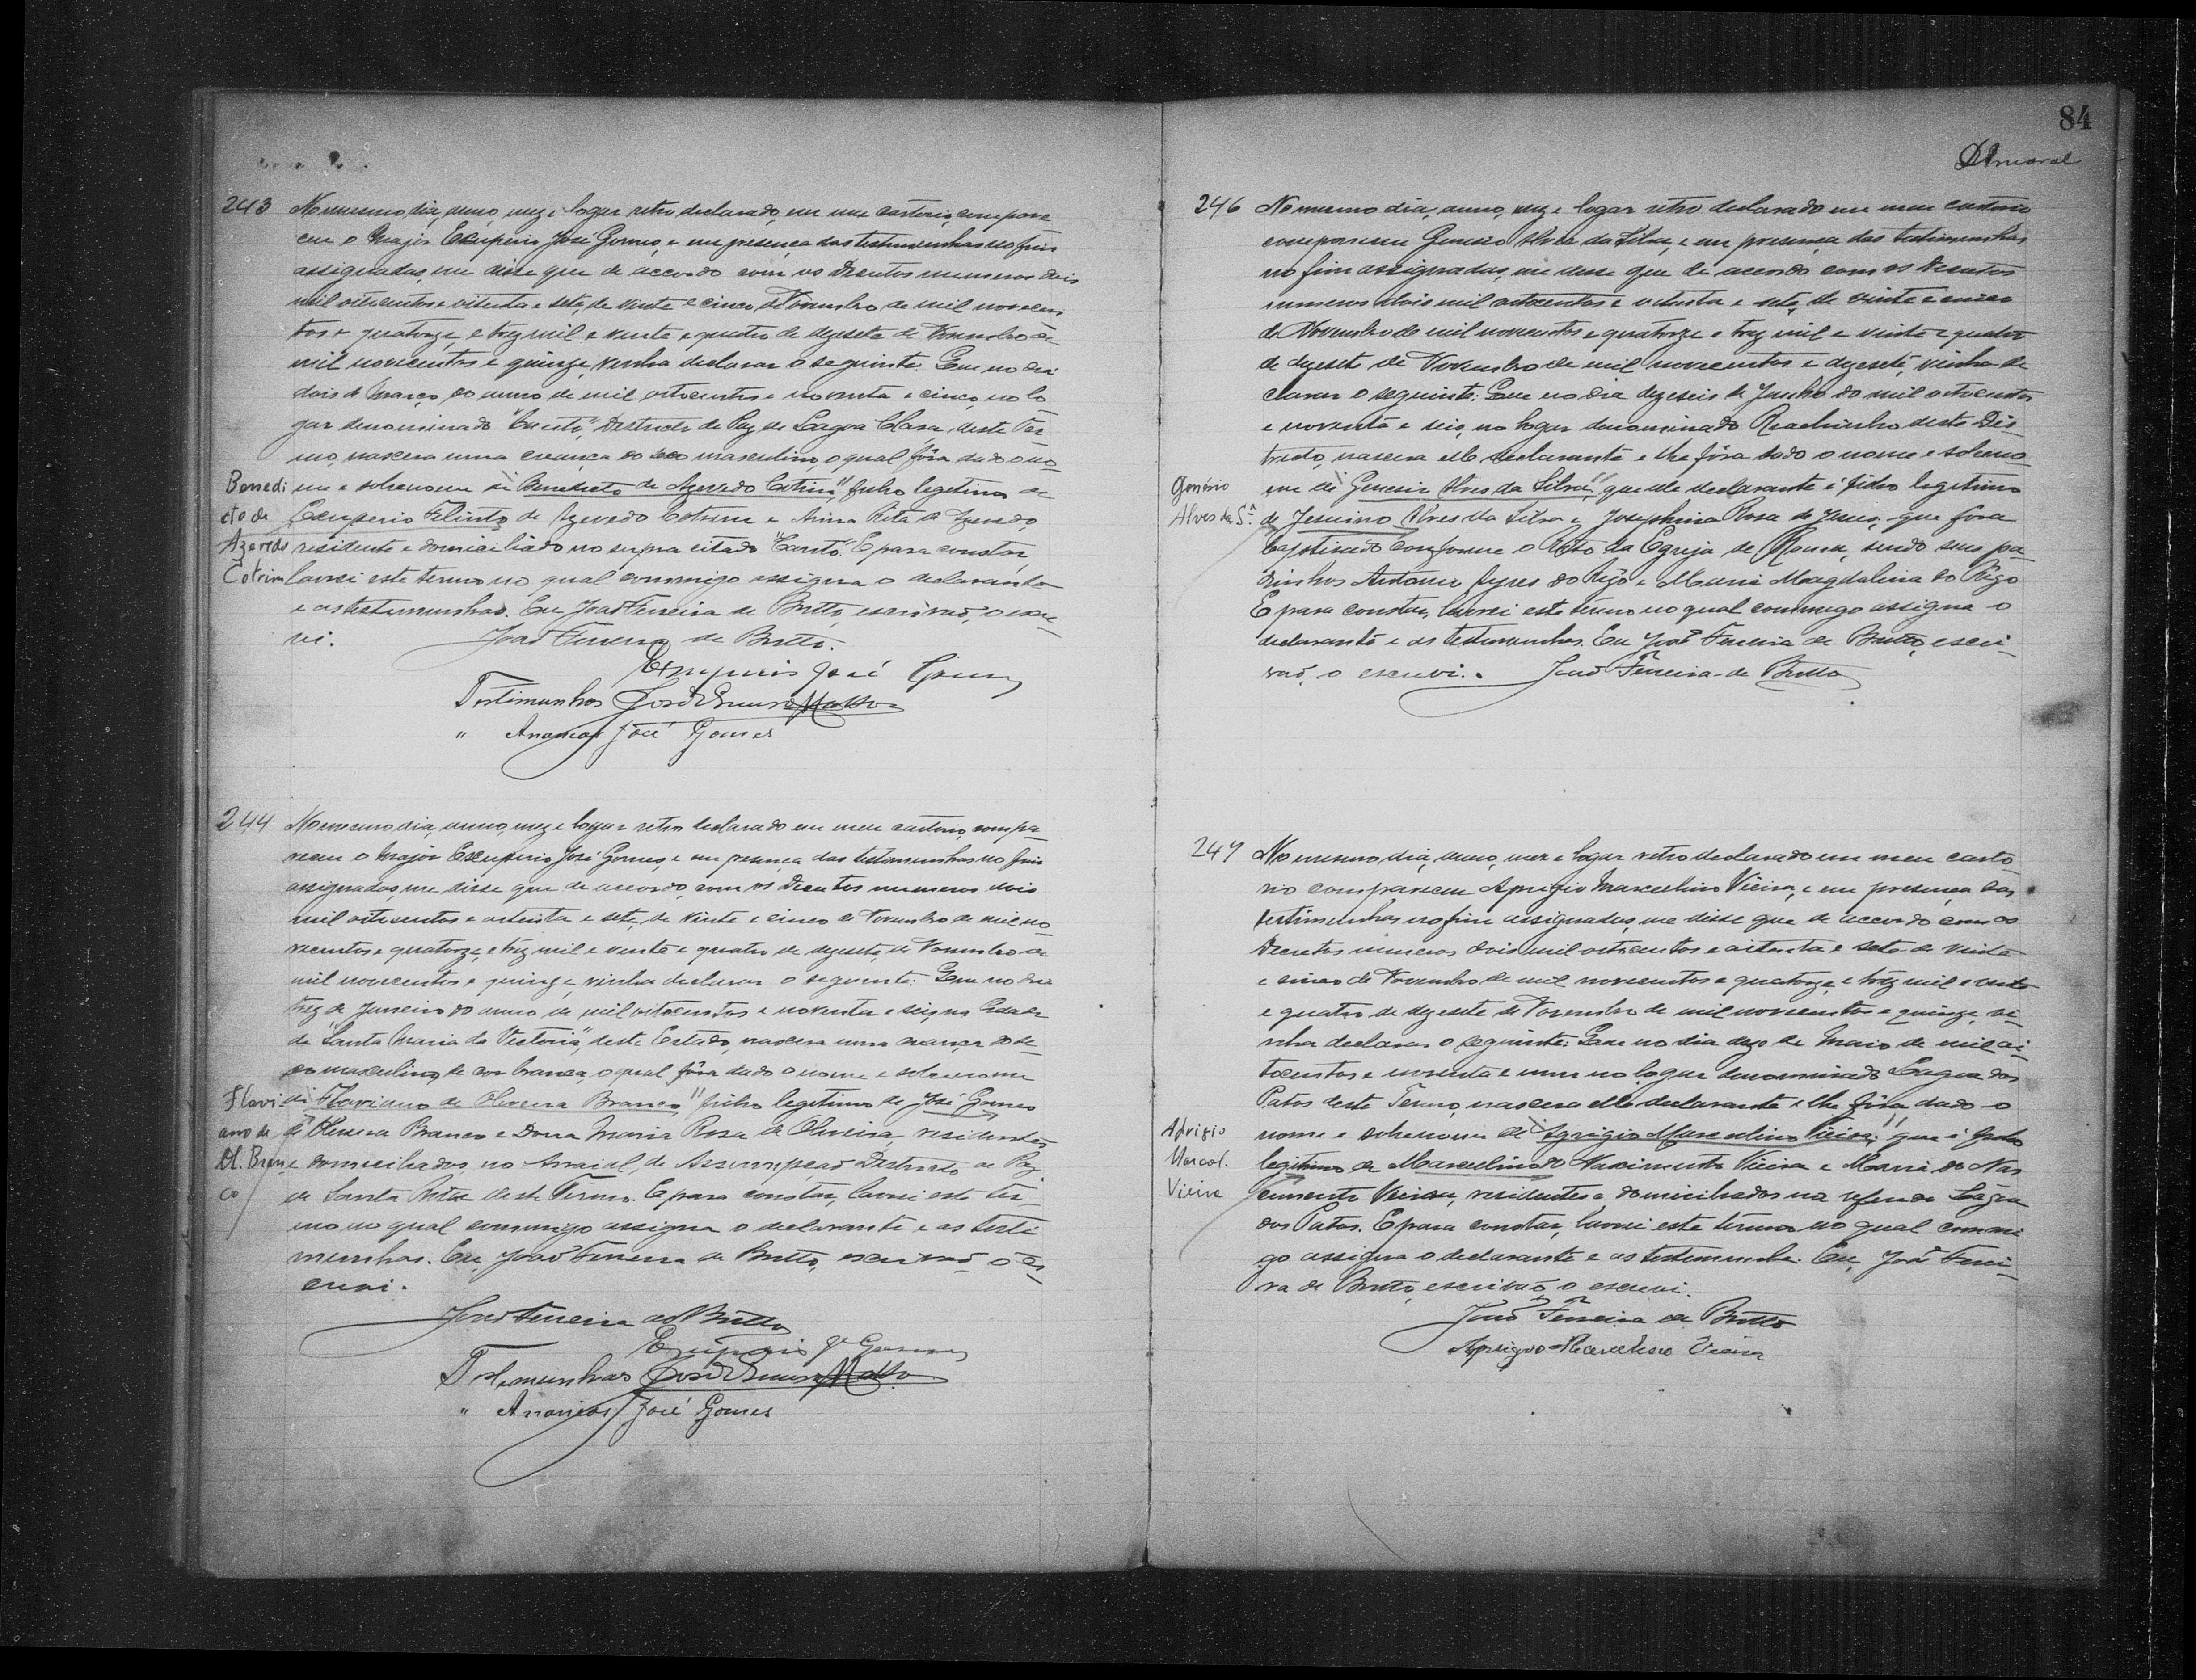 84
DAmaral
243 No mesmo dia, anno, mez e logar retro declarado, em meu cartorio, compare
ceu o Major Exuperio José Gomes, e em presença das testemunhas no fim
assignadas, me disse que de accordo com os Decretos numeros dois
mil oitocentos e oitenta e sete, de vinte e cinco de Novembro de mil novecen
tos e quatorze, e trez mil e vinte e quatro de dezesete de Novembro de
mil novecentos e quinze, vinha declarar o seguinte: Que no dia
dois de Março do anno de mil oitocentos e noventa e cinco, no lo
gar denominado "Canto", Districto de Paz de Lagoa Clara, deste Ter
mo, nascera uma creança do sexo masculino, o qual fôra dado o no-
Benedi me e sobrenome de "Benedicto de Azevedo Cotrim" filho legitimo de
cto de Exuperio Filinto de Azevedo Cotrim e Anna Rita de Azevedo
Azevedo residente e domiciliado no supra citado "Canto". E para constar,
Cotrim lavrei este termo no qual commigo assigna o declarante
e as testemunhas. Eu João Ferreira de Britto, escrivão, o escre-
vi. João Ferreira de Britto.
Exuperio José Gomes
Testimunhas José
" Ananias José Gomes
244 No mesmo dia, anno, mez e logar retro declarado em meu cartorio, compa-
receu o Major Exuperio José Gomes, e em presença das testemunhas no fim
assignadas, me disse que de accordo, com os Decretos numeros dois
mil oitocentos e oitenta e sete, de vinte e cinco de Novembro de mil no
vecentos e quatorze, e trez mil e vinte e quatro de dezesete, de Novembro de
mil novecentos e quinze, vinha declarar o seguinte: Que no dia
trez de Janeiro do anno de mil oitocentos e noventa e seis, na Cidade
de "Santa Maria da Victoria", deste Estado, nascera uma creança do se-
xo masculino, de cor branca, o qual fôra dado o nome e sobrenome
Flavi de "Flaviano de Oliveira Branco" filho legitimo de José Gomes
ano de de Oliveira Branco e Dona Maria Rosa de Oliveira, residentes
Ol. Bran e domiciliados no Arraial de Assumpção Districto de Paz
co de Santa Rita deste Termo. E para constar, lavrei este ter-
mo no qual commigo assigna o declarante e as teste
munhas. Eu, João Ferreira de Britto, escrivão o es-
crevi.
João Ferreira de Britto
Exuperio Jé Gomes
Testemunhas José
" Ananias José Gomes
246 No mesmo dia, anno, mez e logar retro declarado em meu cartorio
compareceu Genesio Alves da Silva, e em presença das testimunhas
no fim assignadas, me disse que de accordo com os Decretos
numeros dois mil oitocentos e oitenta e sete, de vinte e cinco
de Novembro de mil novecentos e quatorze e trez mil e vinte e quatro
de dezesete de Novembro de mil novecentos e dezesete, vinha de
clarar o seguinte: Que no dia dezeseis de Junho do mil oitocentos
e noventa e seis, no logar denominado Riachinho deste Dis-
tricto, nascera elle declarante e lhe fôra dado o nome e sobreno-
Genésio me de "Genesio Alves da Silva", que elle declarante é filho legitimo
Alves da Sª de Jesuino Alves da Silva e Josephina Rosa de Jesus, que fora
baptisado conforme o Rito da Egreja de Roma, sendo seus pa-
drinhos Antonio Ayres do Rêgo e Maria Magdalena do Rêgo
E para constar, lavrei este termo no qual commigo assigna o
declarante e as testemunhas. Eu João Ferreira de Britto, escri-
vão, o escrevi. João Ferreira de Britto
247 No mesmo dia, anno, mez e logar retro declarado em meu carto
rio compareceu Aprigio Marcelino Vieira, e em presença das
testimunhas no fim assignadas, me disse que de accordo com os
Decretos numeros dois mil oitocentos e oitenta e sete de vinte
e cinco de Novembro de mil novecentos e quatorze, e trez mil e vinte
e quatro de dezesete de Novembro de mil novecentos e quinze, vi-
nha declarar o seguinte: Que no dia dezo de Maio de mil oi-
tocentos e noventa e um no logar denominado Lagoa dos
Patos deste Termo, nascera elle declarante e lhe fôra dado o
Aprigio nome e sobrenome de "Aprigio Marcelino Vieira", que é filho
Marcel. legitimo de Marcelino do Nascimento Vieira e Maria do Nas
Vieira cimento Vieira, residentes e domiciliados na referida Lagoa
dos Patos. E para constar, lavrei este termo no qual commi
go assigna o declarante e as testemunhas. Eu, João Ferrei-
ra de Britto, escrivão, o escrevi.
João Ferreira de Britto
Aprigio Marcelino Vieira